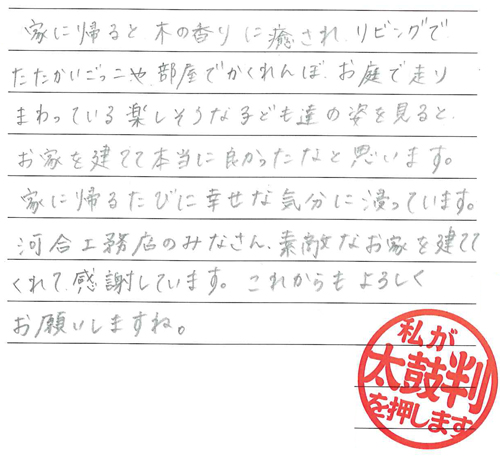 家に帰ると木の香りに癒され、リビングで
たたかいごっこや、部屋でかくれんぼ、お庭で走り
まわっている楽しそうな子ども達の姿を見ると、
お家を建てて本当に良かったなと思います。
家に帰るたびに幸せな気分に浸っています。
河合工務店のみなさん、素敵なお家を建てて
くれて、感謝しています。これからもよろしく
お願いしますね。
私が
太鼓判
を押します